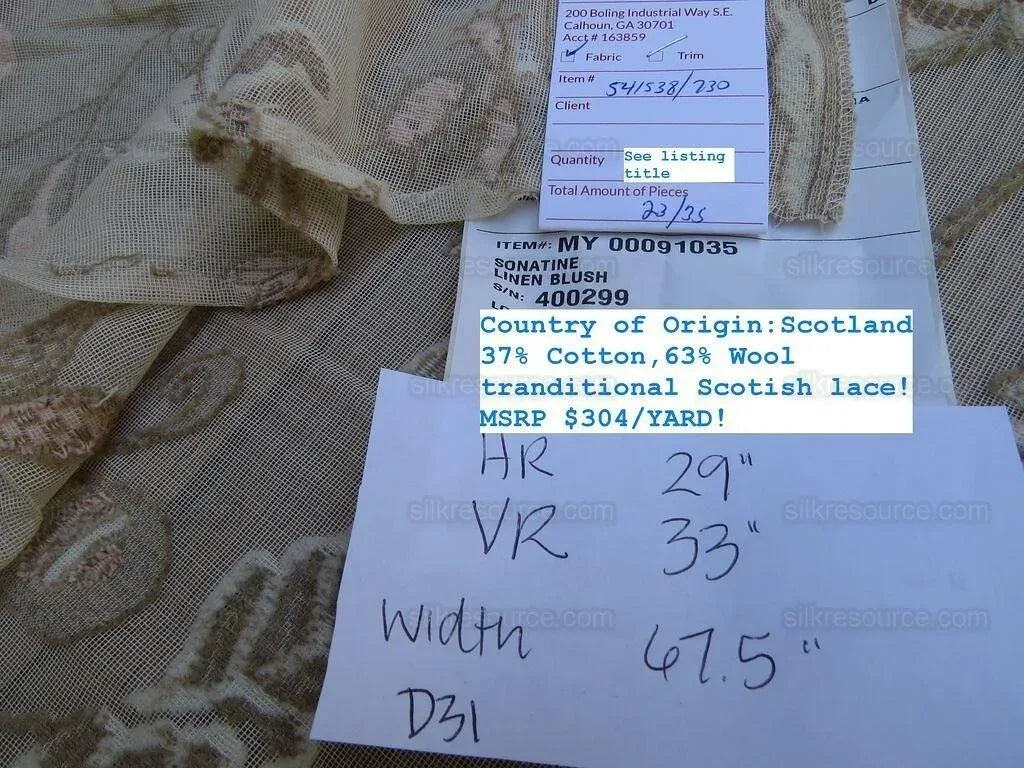 200 Boling Industrial Way S.E.
Calhoun, GA 30701
Acct # 163859
Fabric Trim
Item # 541538/230
Client
Quantity See listing
title
Total Amount of Pieces
23/35
ITEM#: MY 00091035
SONATINE
LINEN BLUSH
S/N: 400299
Country of Origin:Scotland
37% Cotton,63% Wool
tranditional Scotish lace!
MSRP $304/YARD!
HR 29"
VR 33"
Width 67.5"
D31
silkresource.com
silkresource.com
silkresource.com
silkresource.com
silkresource.com
silkresource.com